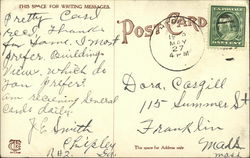 THIS SPACE FOR WRITING MESSAGES.
Pretty Card
Rec'd. Thanks
for Same. I most
prefer Buildings
Views, which do
you prefer? I
am receiving several
Cards daily.
J. E. Smith
Chipley
R#2. Ga.
POST CARD
MAY
27
4 PM
Dora, Casgill
115 Summer St
Franklin
Mass
This space for Address only.